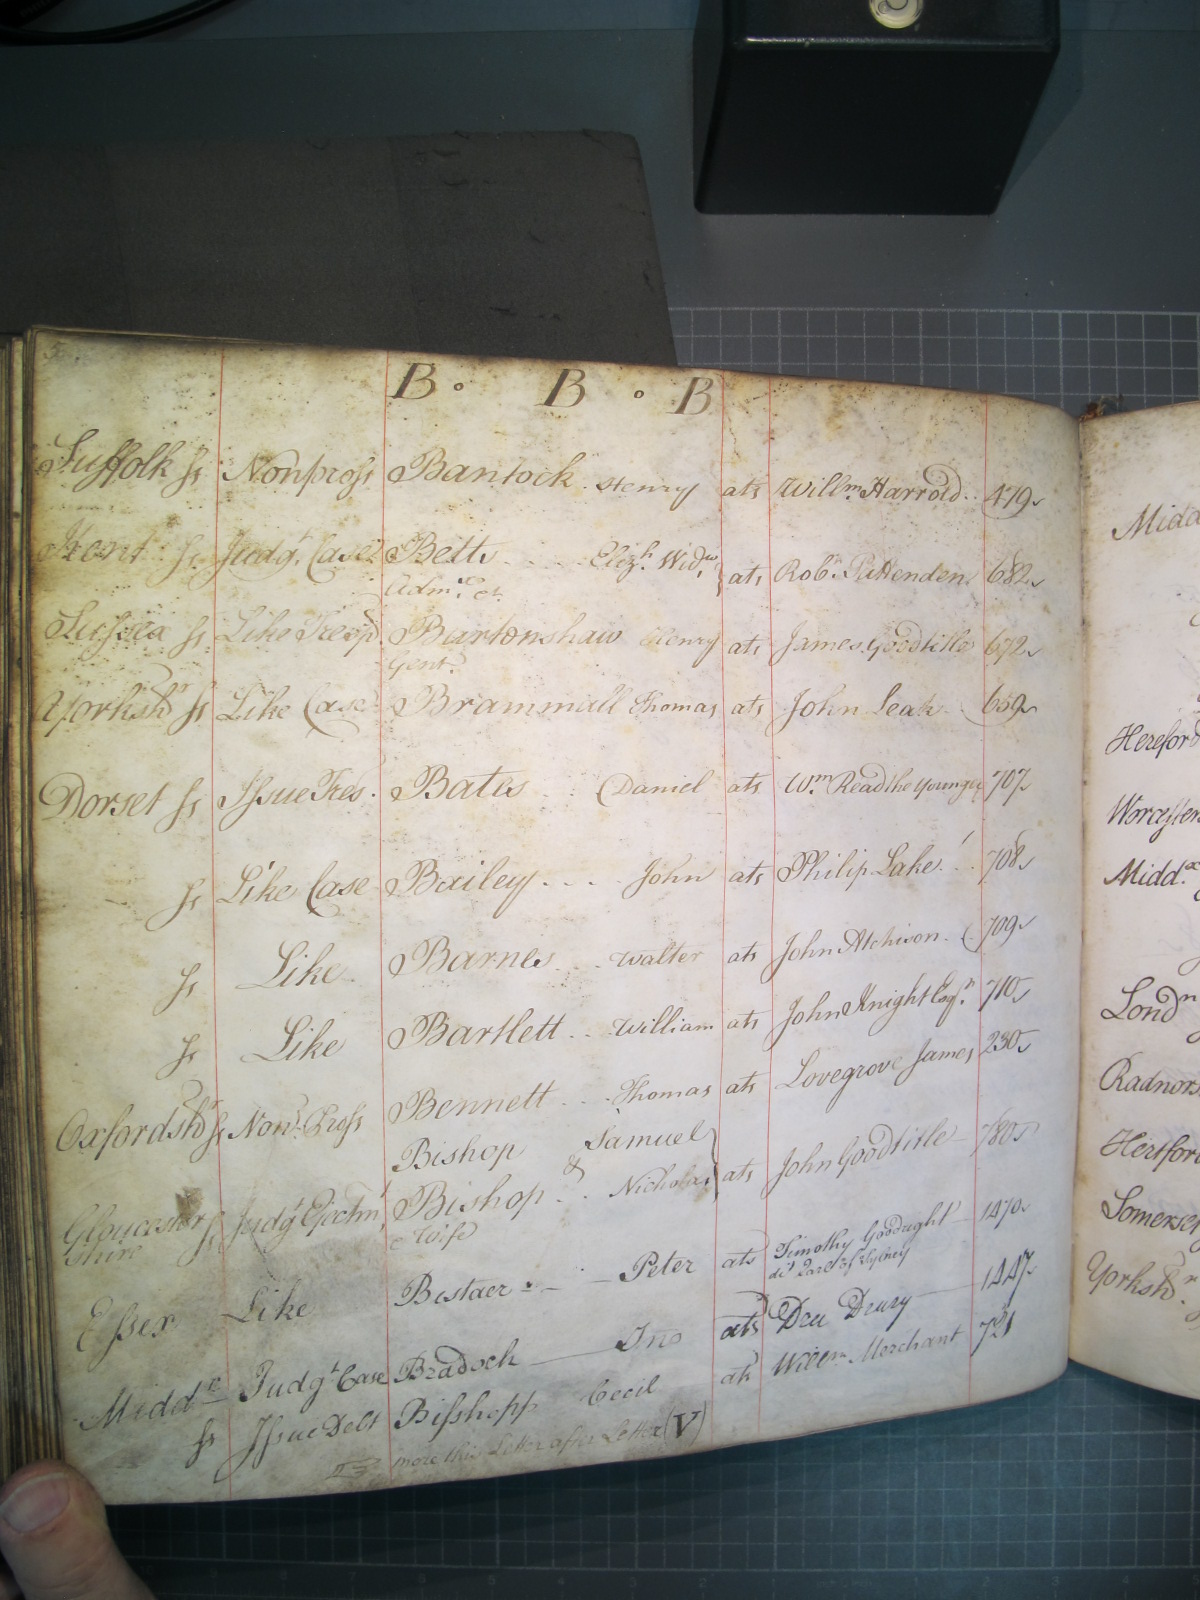 B. B. B
Suffolk ss Nonpross Bantock Henry ats Willm. Harrold 479
Kent ss Judgt. Case Betts Elizh. Widw. ats Robt. Pattenden 682
Admx. &c.
Sussex ss Like Tresp Bartonshaw Henry ats James Goodtitle 672
Gent.
Yorkshr ss Like Case Brammall Thomas ats John Leak 659
Dorset ss Issue Tres. Bates Daniel ats Wm. Read the younger 707
ss Like Case Bailey John ats Philip Lake 708
ss Like Barnes Walter ats John Atchison 709
ss Like Bartlett William ats John Knight Esqr. 710
Oxfordshr ss Non Pross Bennett Thomas ats Lovegrove James 230
Bishop Samuel
&
Gloucester ss Judgt Ejectmt Bishop Nicholas ats John Goodtitle 780
shire Wife
Essex Like Bistaer Peter ats Timothy Goodright 1470
Middx Judgt Case Bradock Jno ats Dru Drury 1447
ss Issue Debt Bisshopp Cecil ats Willm Merchant 721
more this Letter after Letter (V)
Midd
Hereford
Worcester
Middx
Londn
Radnors
Hertford
Somerset
Yorkshr.